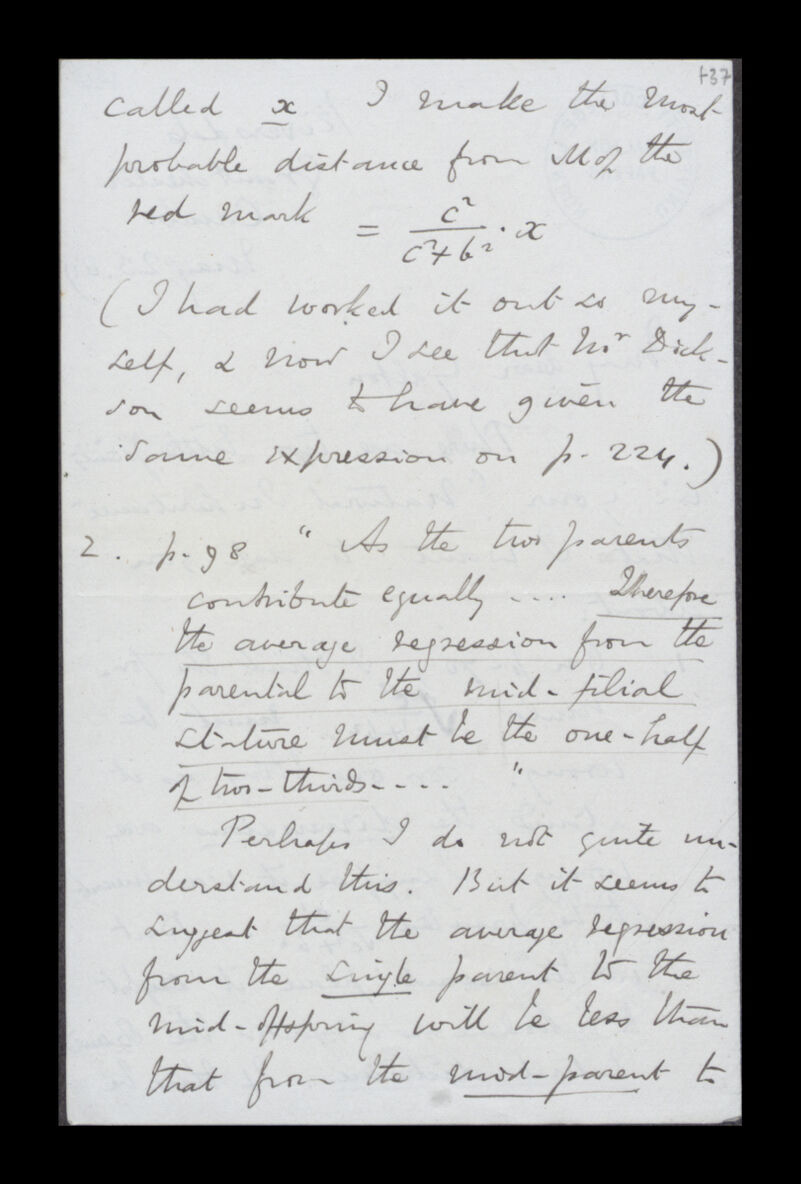 137
called x I make the most
probable distance from M of the
red mark = c²/c²+b² . x
(I had worked it out so my-
self, & now I see that Mr Dick-
son seems to have given the
same expression on p. 224.)
2. p. 98 " As the two parents
contribute equally .... Therefore
the average regression from the
parental to the mid-filial
stature must be the one-half
of two-thirds.... "
Perhaps I do not quite un-
derstand this. But it seems to
suggest that the average regression
from the single parent to the
mid-offspring will be less than
that from the mid-parent to